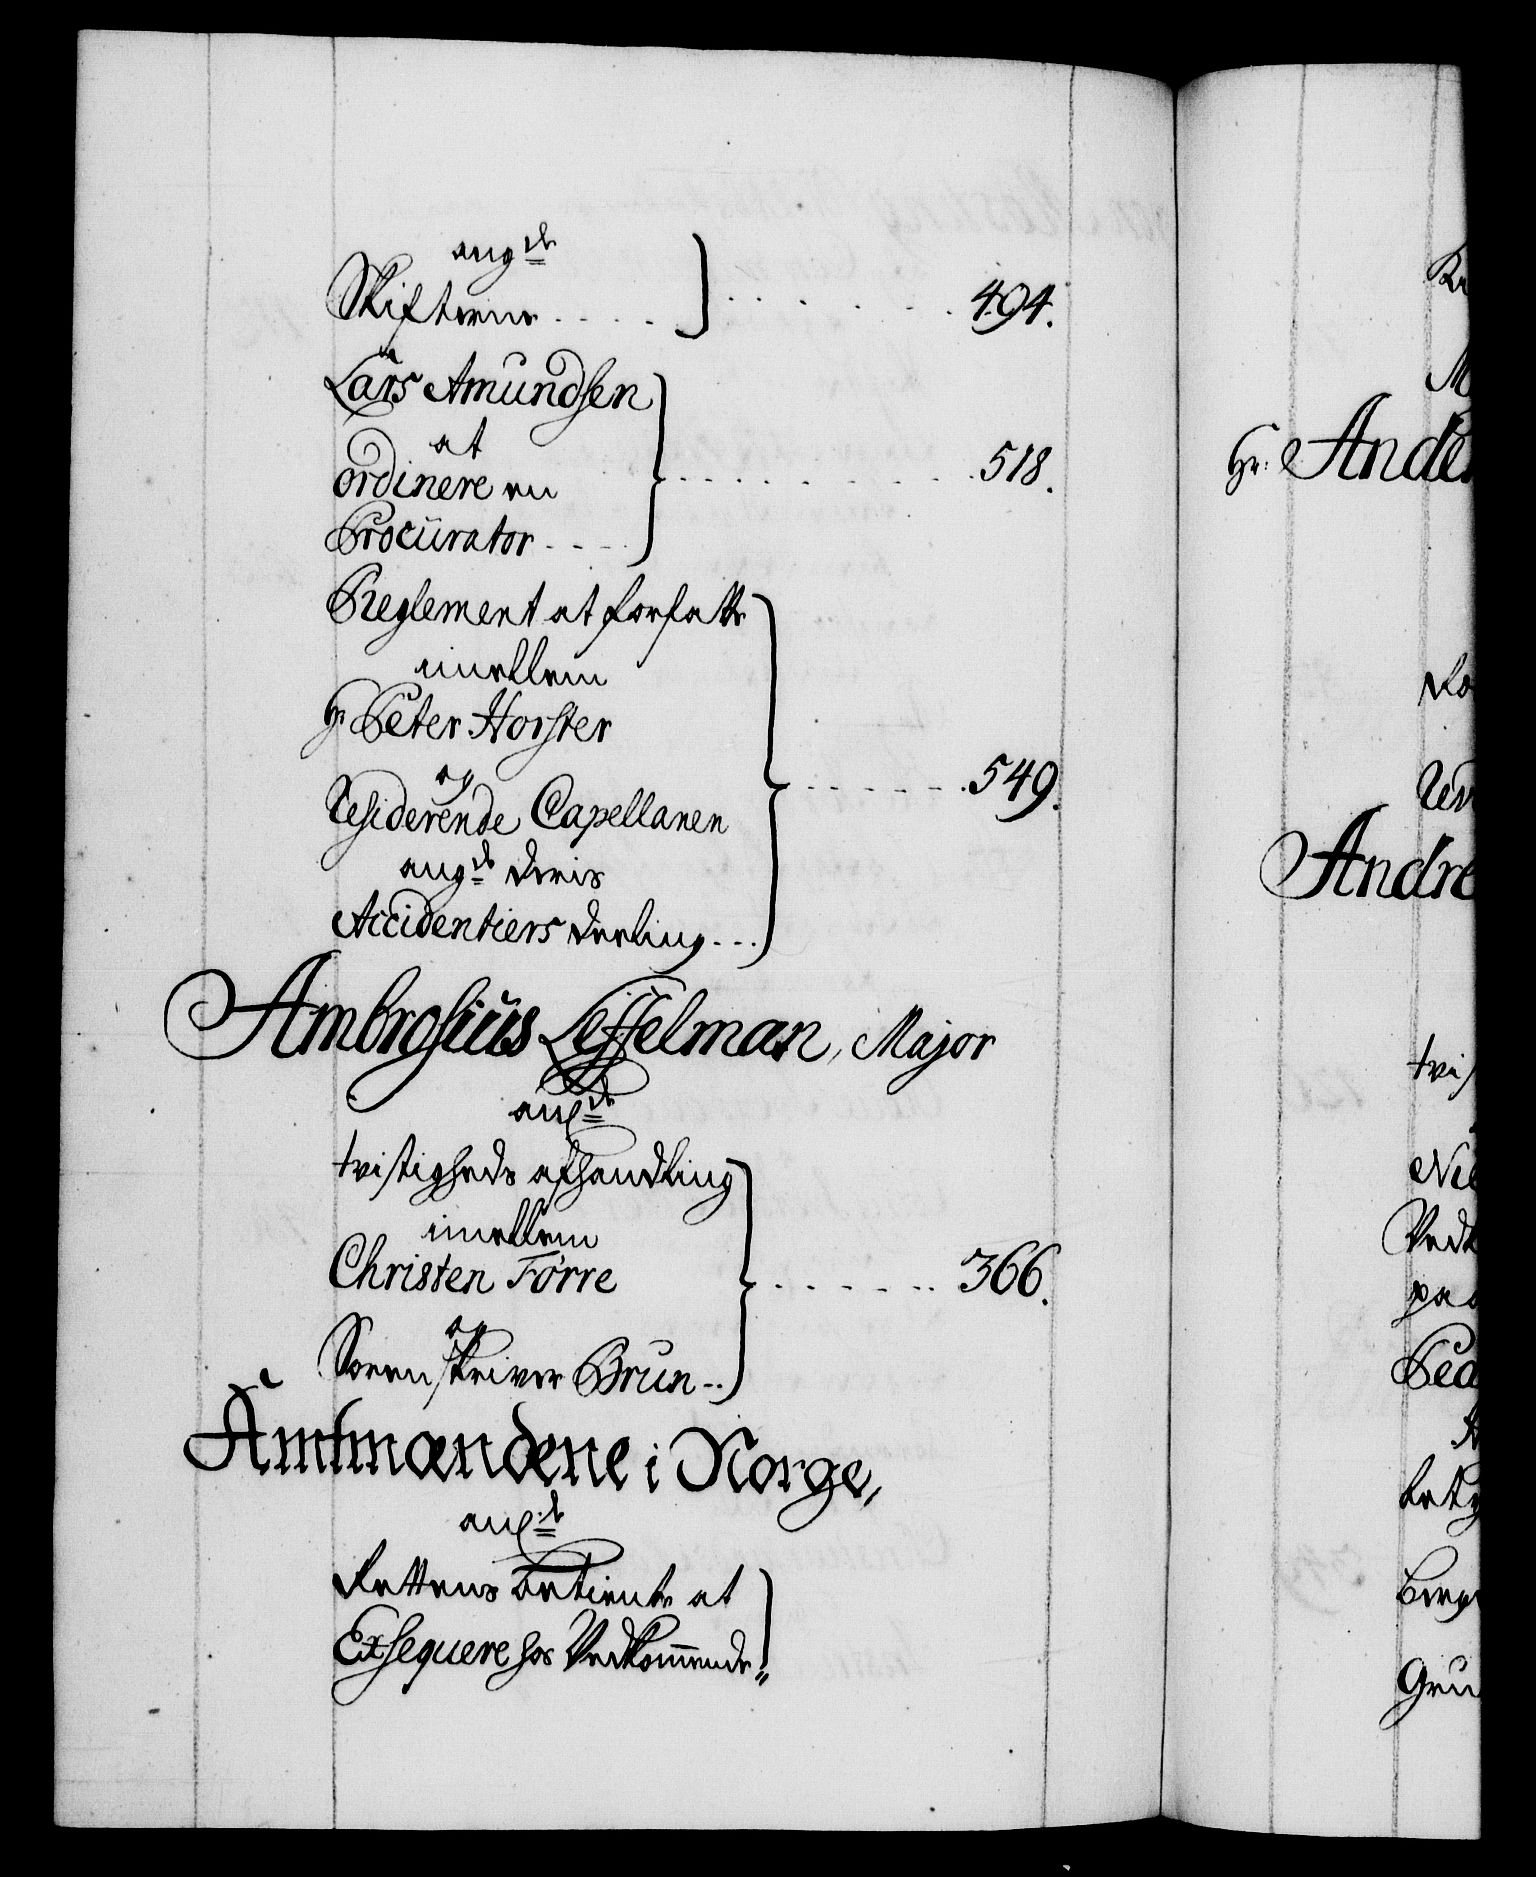 angde
Skifterne . . . . } . . . . . . . 494.
Lars Amundsen
at
ordinere en
Procurator . . . . } . . . . . . . 518.
Reglement at forfatte
imellem
Hr Peter Horster
og
Residerende Capellanen
angde deris
Accidentiers deeling . . . } . . . . . . 549.
Ambrosius Leffelman, Major
angde
tvistigheds afhandling
imellem
Christen Förre
og
Sorenskriver Brun . . } . . . . . . 366.
Amtmændene i Norge,
angde
Rettens betiente at
Exsequere hos Vedkommende
Hr: Ander
Andre
tvis
Niel
Vedk
paa
Ped
Gru